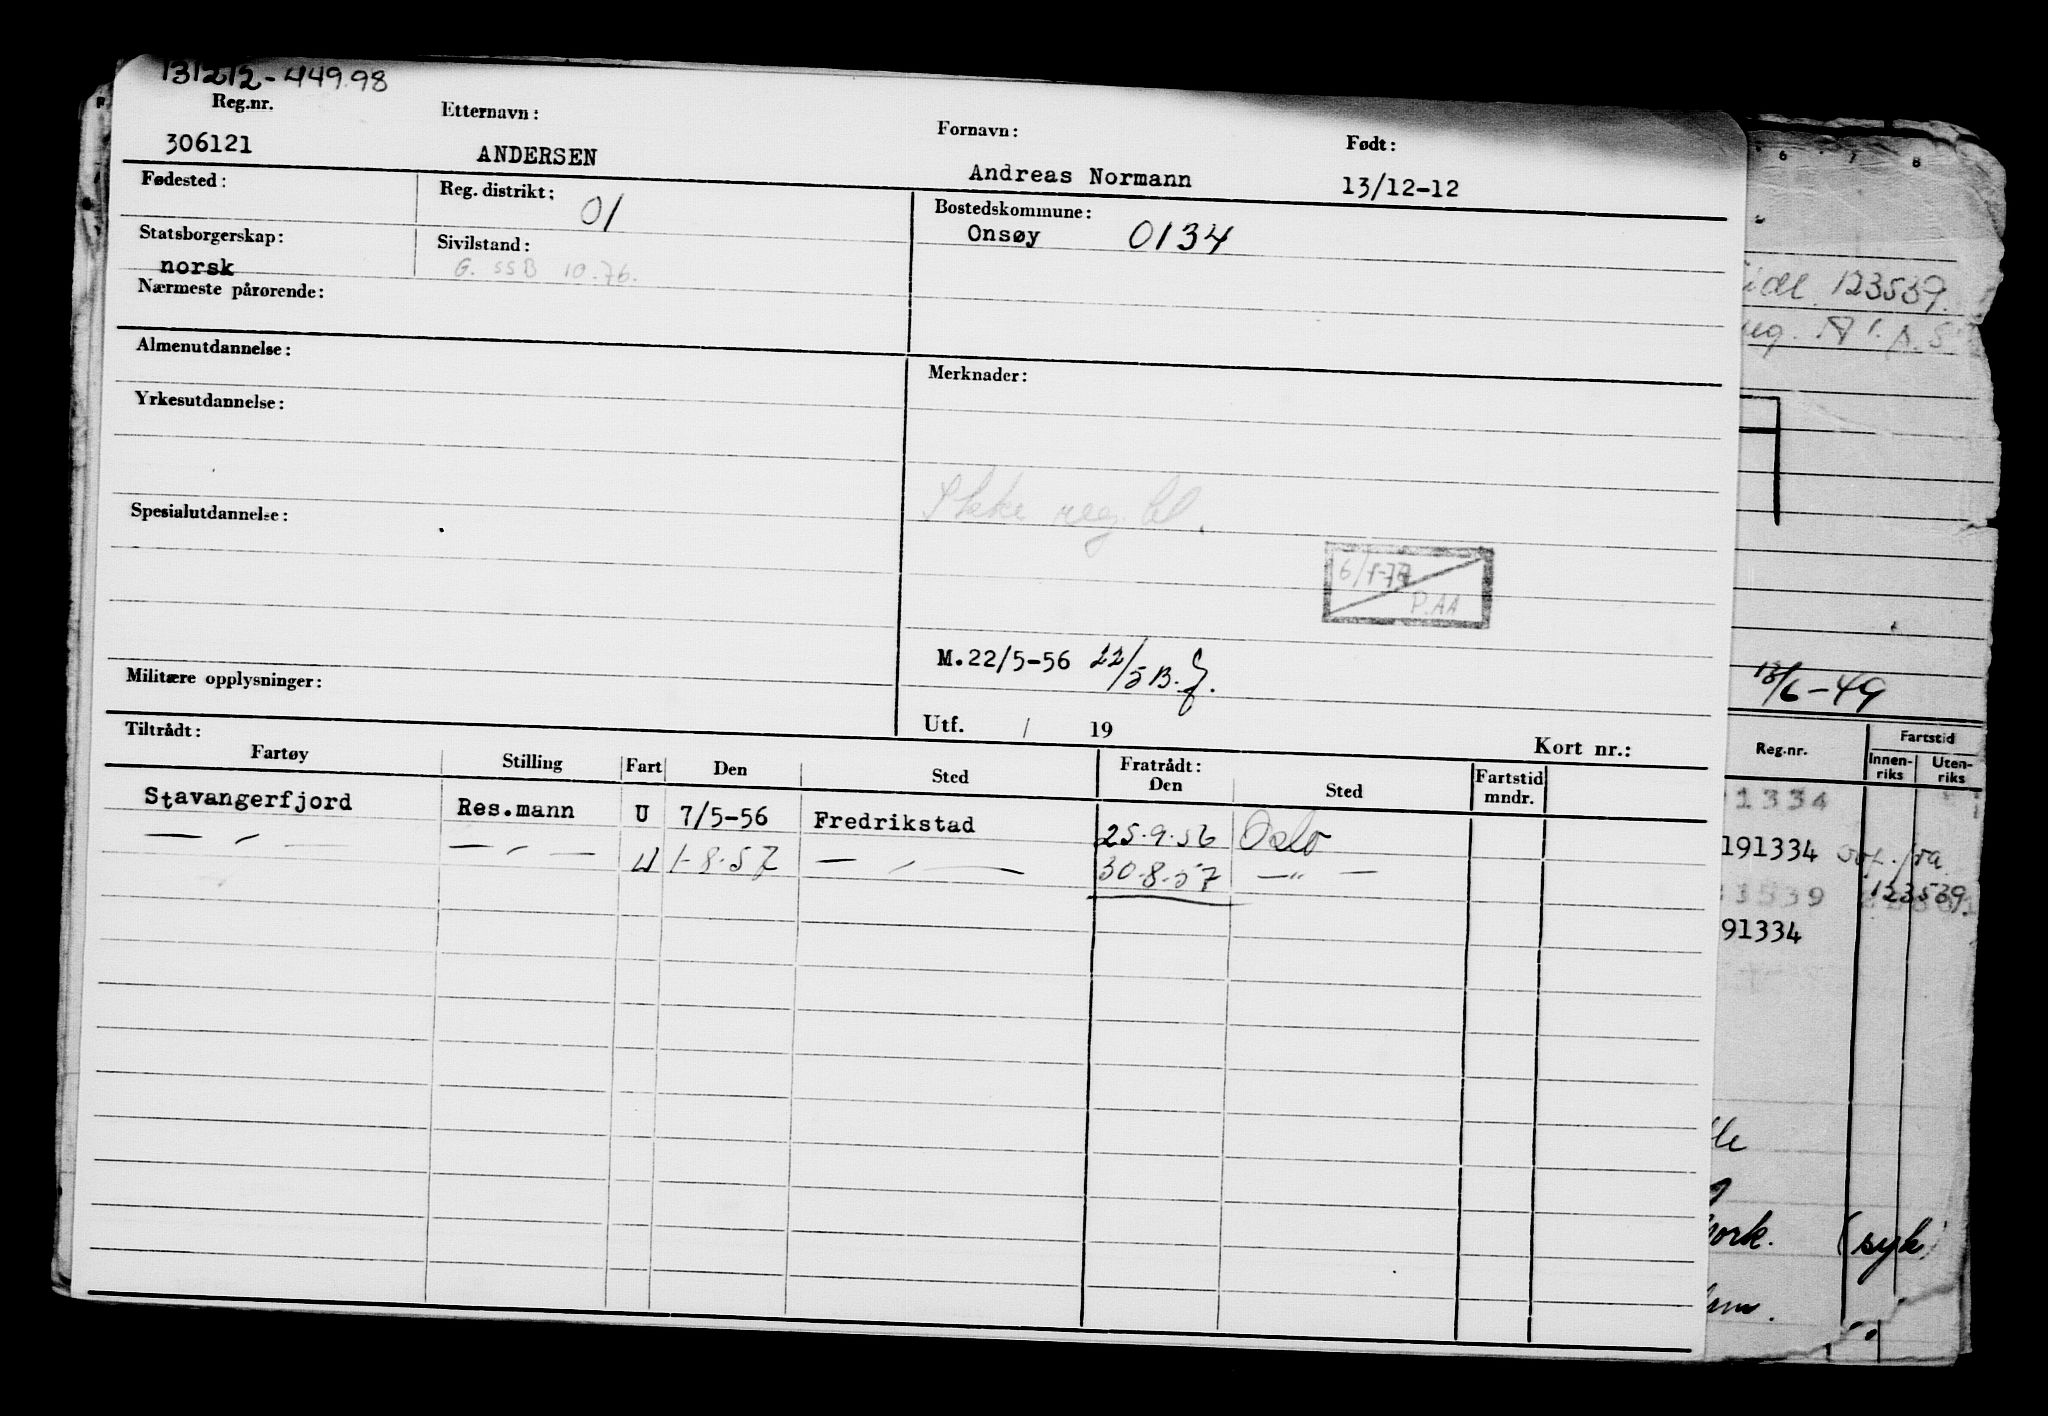 131212-449.98
Reg.nr. Etternavn: Fornavn: Født:
306121 ANDERSEN Andreas Normann 13/12-12
Fødested: Reg. distrikt: 01 Bostedskommune:
Onsøy 0134
Statsborgerskap: Sivilstand:
norsk G. SSB 10.76.
Nærmeste pårørende:
Almenutdannelse: Merknader:
Yrkesutdannelse:
Ikke reg. bl.
Spesialutdannelse:
6/1-77
P.AA
M.22/5-56 22/5 B.
Militære opplysninger:
Utf. / 19 Kort nr.:
Tiltrådt: Fratrådt:
Fartøy Stilling Fart Den Sted Den Sted Fartstid mndr.
Stavangerfjord Res.mann U 7/5-56 Fredrikstad 25.9.56 Oslo
— " — — " — U 1-8-57 — " — 30-8-57 — " —
6 7 8
123539.
13/6-49
Reg.nr. Fartstid
Innen-riks Uten-riks
91334
191334
123539.
3539
91334
ork. (syk)